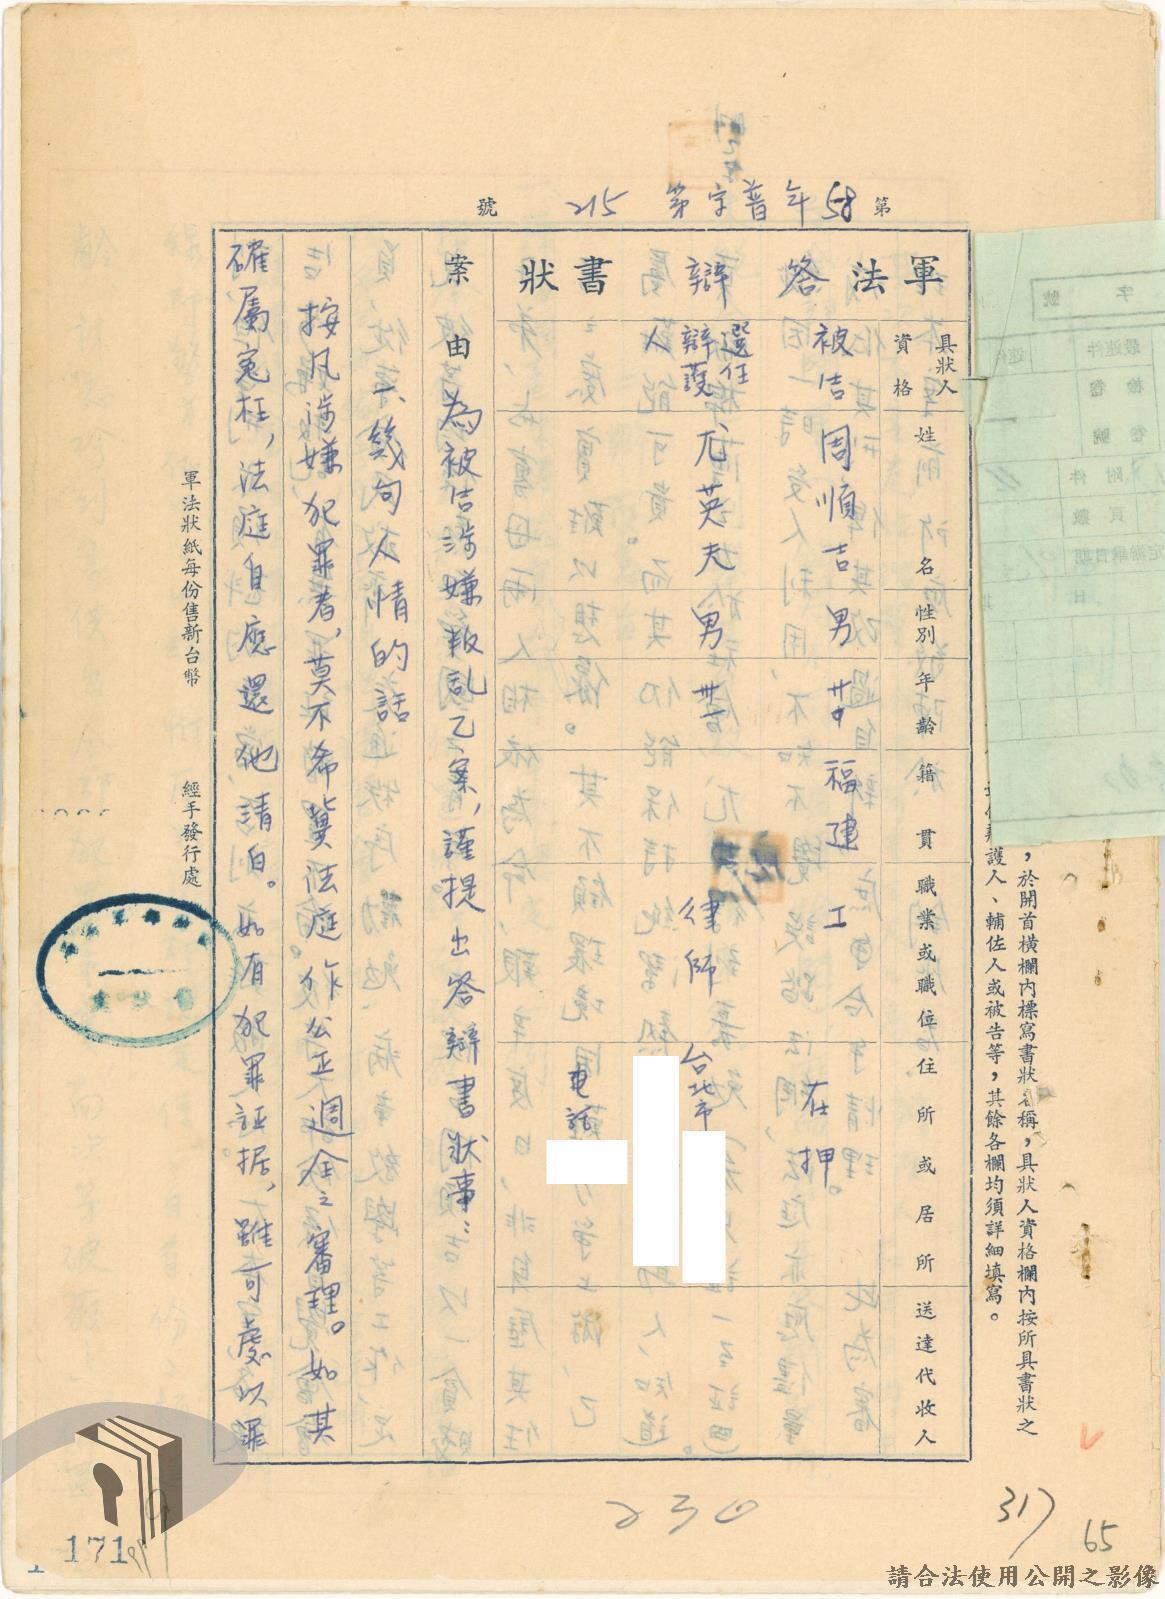 第58年普字第215號
軍法答辯書狀
具狀人資格
姓名
性別
年齡
籍貫
職業或職位
住所或居所
送達代收人
被告周順吉男廿福建工在押。
選任辯護人尤英夫男卅律師台北市
電話
案由為被告涉嫌叛乱乙案,謹提出答辯書狀事:
一、幾句人情的話
按凡涉嫌犯罪者,莫不希冀法庭作公正週全之審理。如其
確屬冤枉,法庭自應還他請白。如有犯罪証据,雖可處以罪
,於開首橫欄內標寫書狀名稱,具狀人資格欄內按所具書狀之
護人、輔佐人或被告等,其餘各欄均須詳細填寫。
軍法狀紙每份售新台幣
經手發行處
230
317
65
171
請合法使用公開之影像